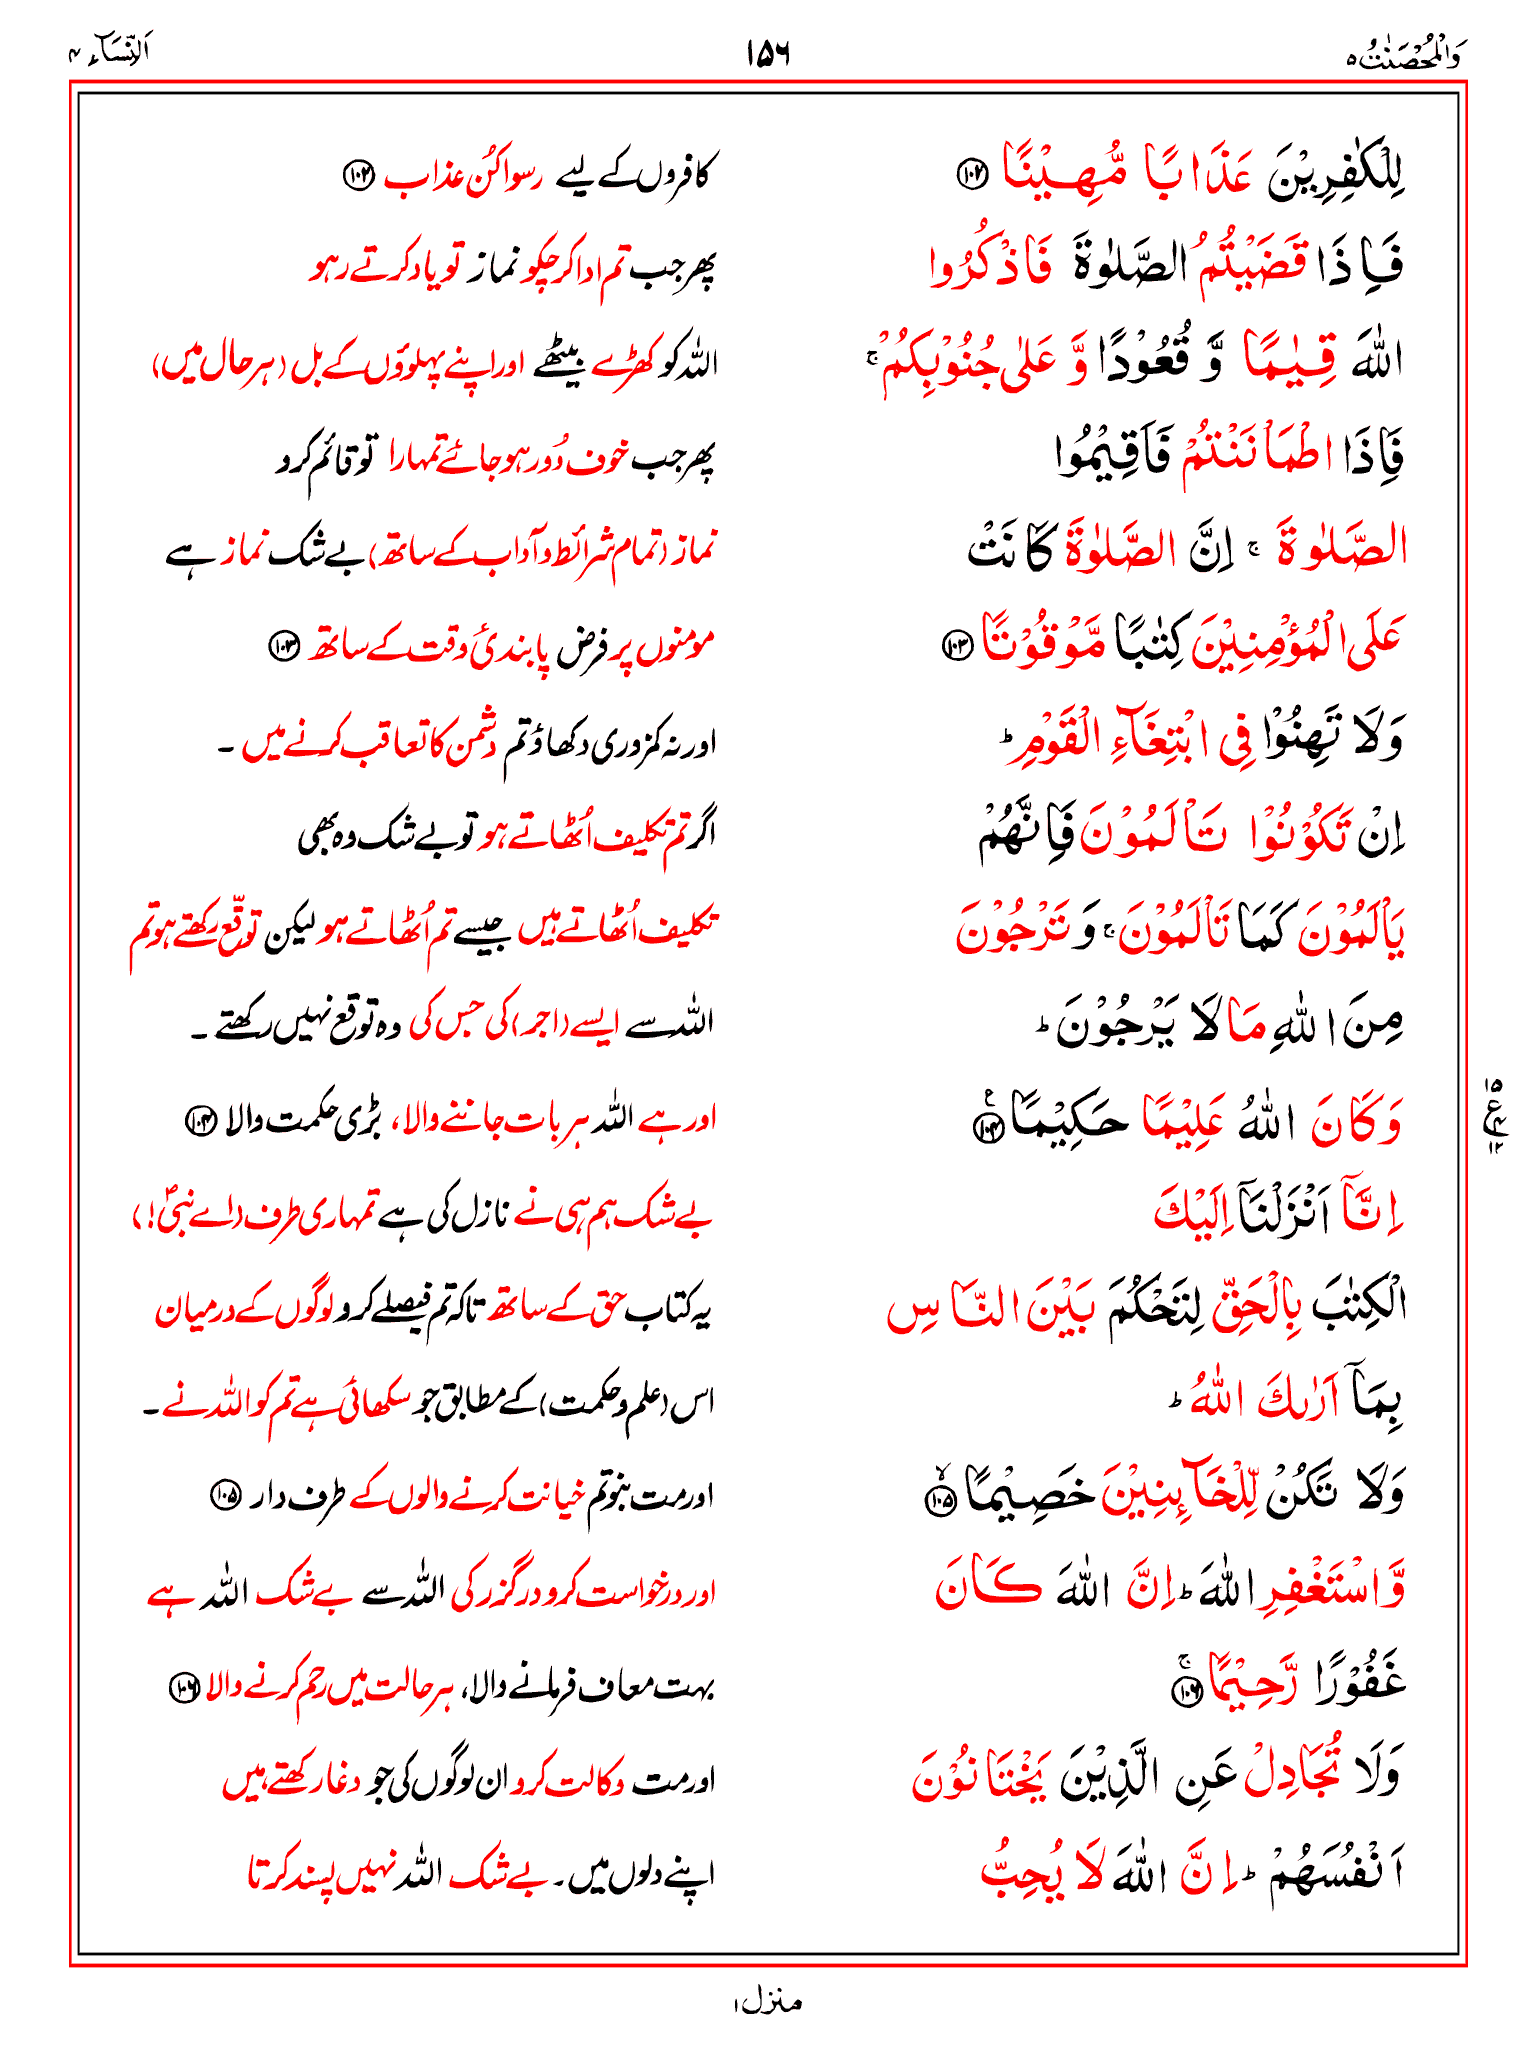 وَالْمُحْصَنٰتُ ۵ ۱۵۶ اَلنِّسَآء ۴
لِلْكٰفِرِيْنَ عَذَابًا مُّهِيْنًا ۝۱۰۲ کافروں کے لیے رسوا کُن عذاب ۝۱۰۲
فَاِذَا قَضَيْتُمُ الصَّلٰوةَ فَاذْكُرُوا پھر جب تم ادا کر چکو نماز تو یاد کرتے رہو
اللّٰهَ قِيٰمًا وَّ قُعُوْدًا وَّ عَلٰى جُنُوْبِكُمْ ۚ اللہ کو کھڑے بیٹھے اور اپنے پہلوؤں کے بل (ہر حال میں)
فَاِذَا اطْمَاْنَنْتُمْ فَاَقِيْمُوا پھر جب خوف دُور ہو جائے تمہارا تو قائم کرو
الصَّلٰوةَ ۚ اِنَّ الصَّلٰوةَ كَانَتْ نماز (تمام شرائط و آداب کے ساتھ) بے شک نماز ہے
عَلَى الْمُؤْمِنِيْنَ كِتٰبًا مَّوْقُوْتًا ۝۱۰۳ مومنوں پر فرض پابندیٔ وقت کے ساتھ ۝۱۰۳
وَلَا تَهِنُوْا فِى ابْتِغَآءِ الْقَوْمِ ؕ اور نہ کمزوری دکھاؤ تم دشمن کا تعاقب کرنے میں ۔
اِنْ تَكُوْنُوْا تَاْلَمُوْنَ فَاِنَّهُمْ اگر تم تکلیف اُٹھاتے ہو تو بے شک وہ بھی
يَاْلَمُوْنَ كَمَا تَاْلَمُوْنَ ۚ وَ تَرْجُوْنَ تکلیف اُٹھاتے ہیں جیسے تم اُٹھاتے ہو لیکن توقّع رکھتے ہو تم
مِنَ اللّٰهِ مَا لَا يَرْجُوْنَ ؕ اللہ سے ایسے (اجر) کی جس کی وہ توقع نہیں رکھتے ۔
وَكَانَ اللّٰهُ عَلِيْمًا حَكِيْمًا ۝۱۰۴ اور ہے اللہ ہر بات جاننے والا، بڑی حکمت والا ۝۱۰۴
۱۵ ع ۴ ۱۲
اِنَّآ اَنْزَلْنَآ اِلَيْكَ بے شک ہم ہی نے نازل کی ہے تمہاری طرف (اے نبیؐ!)
الْكِتٰبَ بِالْحَقِّ لِتَحْكُمَ بَيْنَ النَّاسِ یہ کتاب حق کے ساتھ تاکہ تم فیصلے کرو لوگوں کے درمیان
بِمَآ اَرٰىكَ اللّٰهُ ؕ اس (علم و حکمت) کے مطابق جو سکھائی ہے تم کو اللہ نے ۔
وَلَا تَكُنْ لِّلْخَآىِٕنِيْنَ خَصِيْمًا ۝۱۰۵ۙ اور مت بنو تم خیانت کرنے والوں کے طرف دار ۝۱۰۵
وَّاسْتَغْفِرِ اللّٰهَ ؕ اِنَّ اللّٰهَ كَانَ اور درخواست کرو درگزر کی اللہ سے بے شک اللہ ہے
غَفُوْرًا رَّحِيْمًا ۝۱۰۶ۚ بہت معاف فرمانے والا، ہر حالت میں رحم کرنے والا ۝۱۰۶
وَلَا تُجَادِلْ عَنِ الَّذِيْنَ يَخْتَانُوْنَ اور مت وکالت کرو ان لوگوں کی جو دغا رکھتے ہیں
اَنْفُسَهُمْ ؕ اِنَّ اللّٰهَ لَا يُحِبُّ اپنے دلوں میں ۔ بے شک اللہ نہیں پسند کرتا
منزل ۱